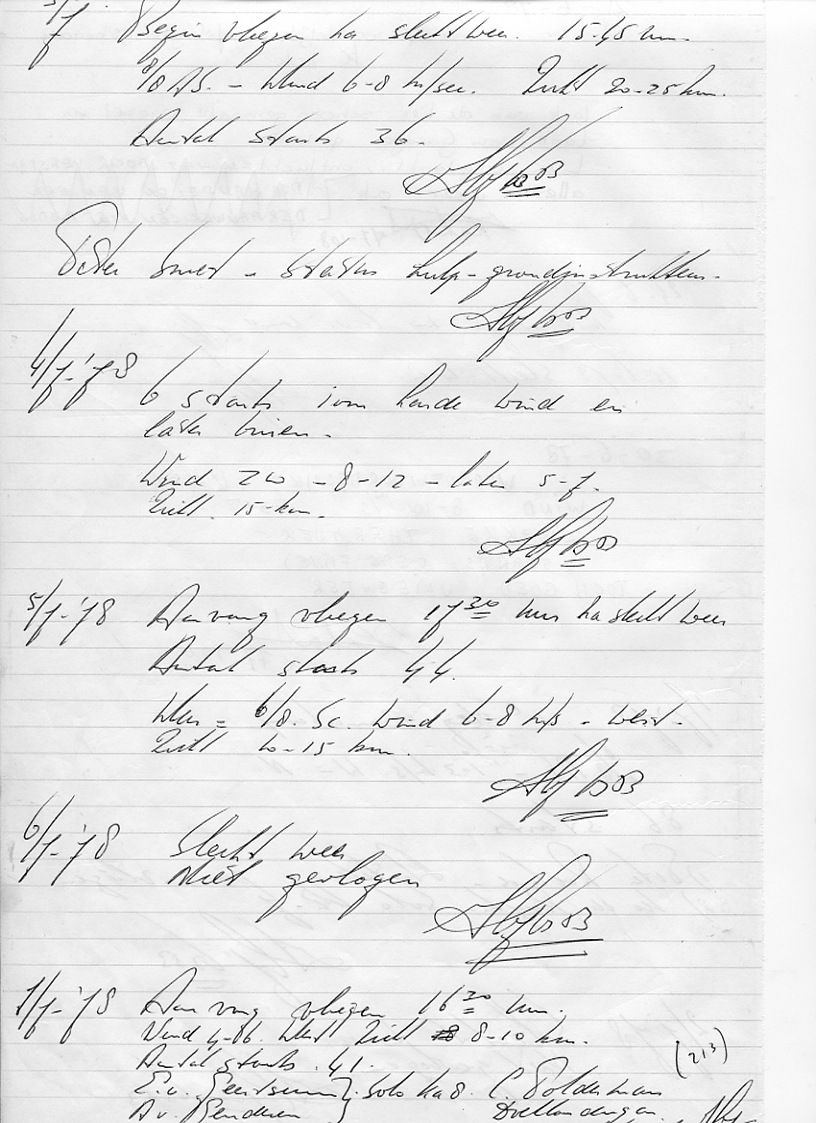 3/7 Begin vliegen na slecht weer. 15-45 uur.
8/8 AS. - Wind 6-8 m/sec. Zicht 20-25 km.
Aantal starts 36.
Peter Smet - status hulp-grondinstrukteur.
4/7-'78 6 starts i.v.m. harde wind en
later buien.
Wind ZW - 8-12 - later 5-7.
Zicht. 15-km.
5/7-'78 Aanvang vliegen 17 30 uur na slecht weer
Aantal starts 44.
6/8. Sc. wind 6-8 m/s - west.
Zicht 10-15 km.
6/7-'78 Slecht weer
Niet gevlogen
7/7-'78 Aanvang vliegen 16 30 uur.
Wind 4-6. West Zicht 8-10 km.
(213)
Aantal starts. 41.
E.v. } Solo Ka8. C. Polderman
A v. Drielandengan.